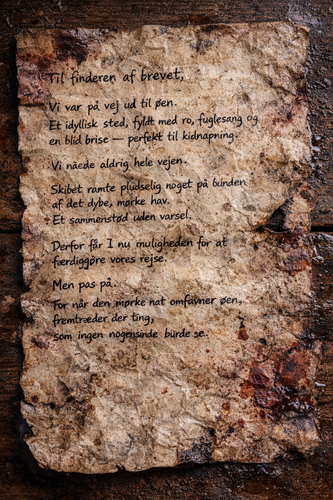 Til finderen af brevet,
Vi var på vej ud til øen.
Et idyllisk sted, fyldt med ro, fuglesang og
en blid brise — perfekt til kidnapning.
Vi nåede aldrig hele vejen.
Skibet ramte pludselig noget på bunden
af det dybe, mørke hav.
Et sammenstød uden varsel.
Derfor får I nu muligheden for at
færdiggøre vores rejse.
Men pas på.
For når den mørke nat omfavner øen,
fremtræder der ting,
som ingen nogensinde burde se.